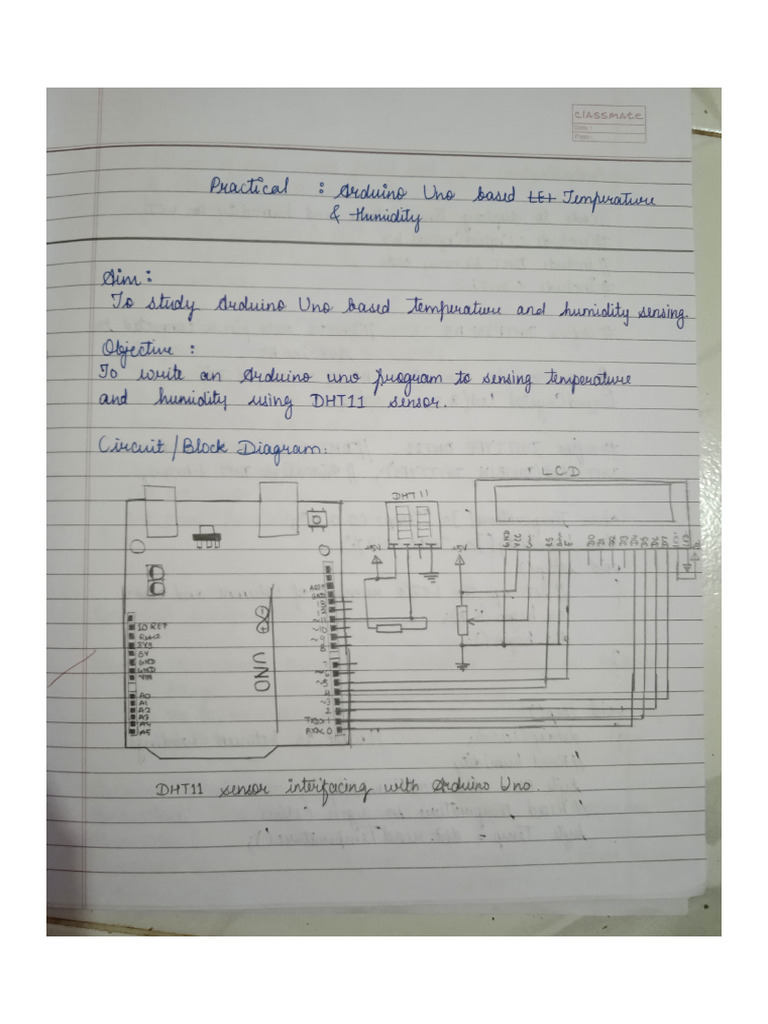 CLASSMATE
Date :
Page :
Practical : Arduino Uno based Temperature
& Humidity
Aim :
To study Arduino Uno based temperature and humidity sensing.
Objective :
To write an Arduino uno program to sensing temperature
and humidity using DHT11 sensor.
Circuit / Block Diagram :
LCD
DHT 11
GND
VCC
RS
E
D0
D1
D2
D3
D4
D5
D6
D7
AREF
GND
IO REF
3V3
5V
GND
GND
VIN
UNO
A0
A1
A2
A3
A4
A5
TXD 1
RXD 0
DHT11 sensor interfacing with Arduino Uno.